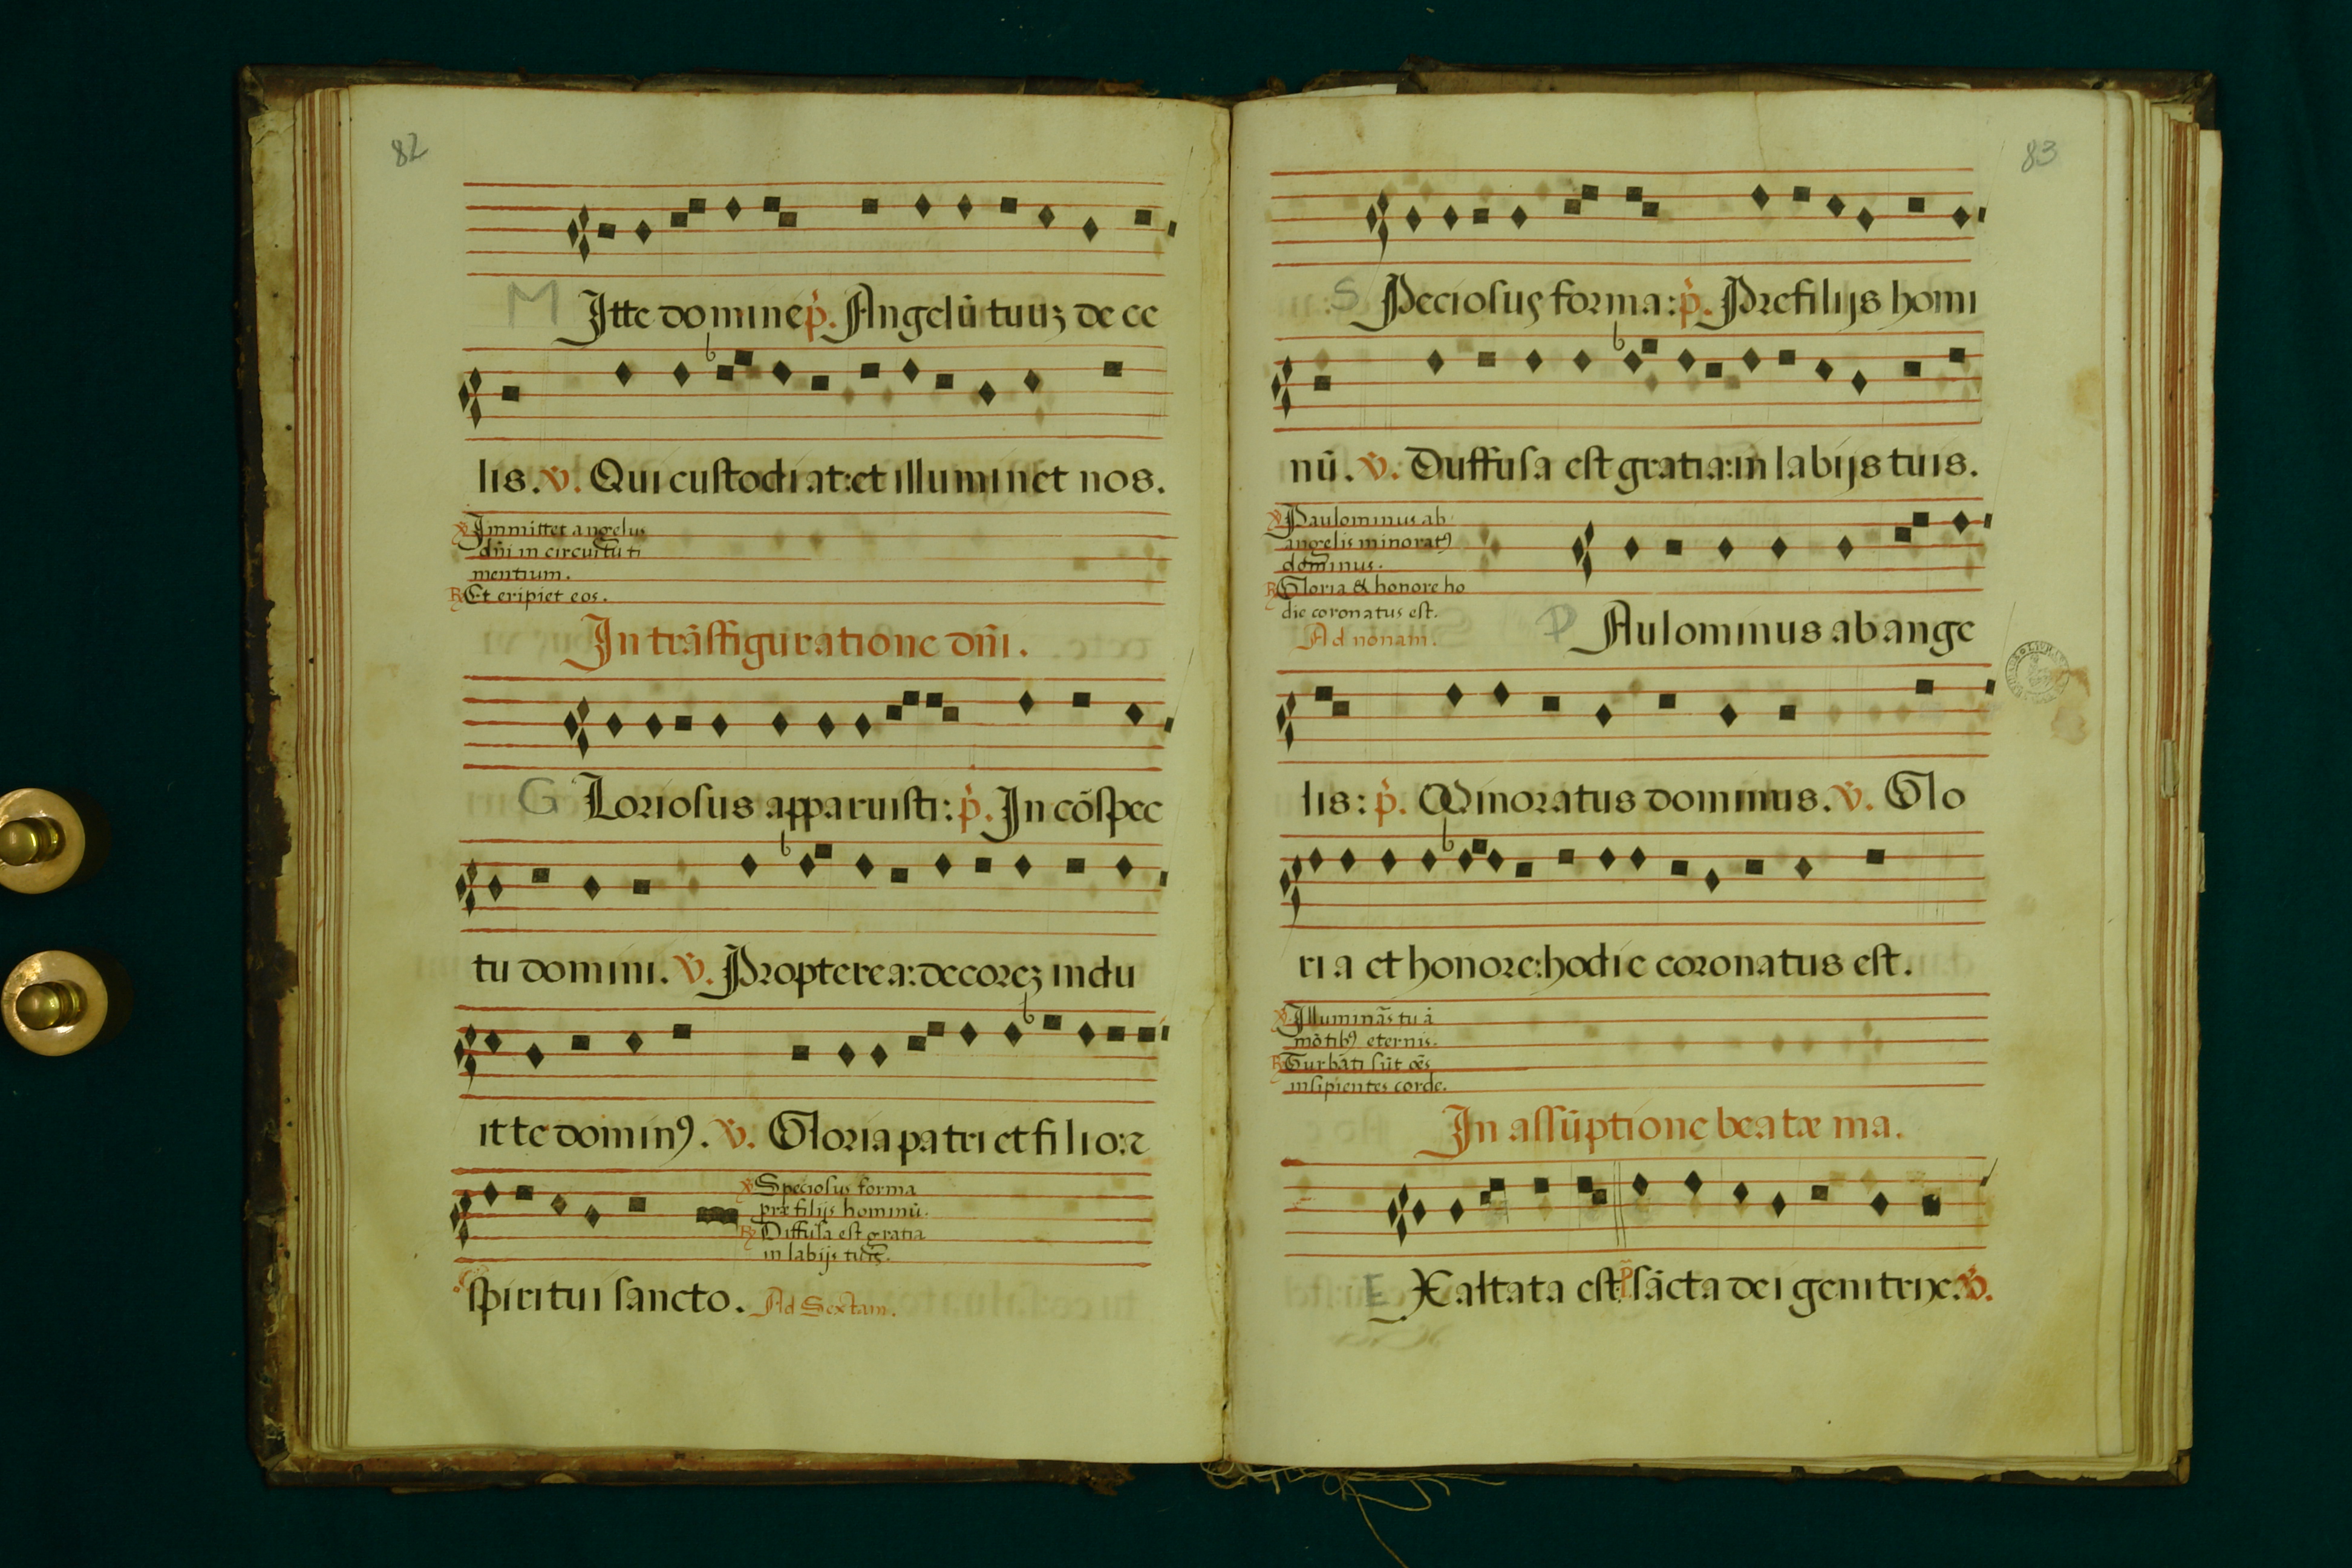 82
M Itte domine p̓. Angelū tuuȝ de ce
lis. v̓. Qui custodiat: et illuminet nos.
v̓ Immittet angelus
dn̄i in circuitu ti
mentium.
R Et eripiet eos.
In trāsfiguratione dn̄i.
G Loriosus apparuisti: p̓. In cōspec
tu domini. v̓. Propterea: decoreȝ indu
it te dominꝰ. v̓. Gloria patri et filio: ꝛ
v̓ Speciosus forma
præ filijs hominū.
R Diffusa est gratia
in labijs tuis.
spiritui sancto. Ad Sextam.
83
S Peciosus forma: p̓. Pre filijs homi
nū. v̓. Duffusa est gratia: in labijs tuis.
v̓ Paulominus ab
angelis minoratꝰ
dominus.
R Gloria & honore ho
die coronatus est.
Ad nonam.
P Aulominus ab ange
lis: p̓. Minoratus dominus. v̓. Glo
ria et honore: hodie coronatus est.
v̓ Illuminās tu ā
mōtibꝰ eternis.
R Turbati sūt oēs
insipientes corde.
In assūptione beatæ ma.
E Xaltata est p̄ sācta dei genitrix. v̓.